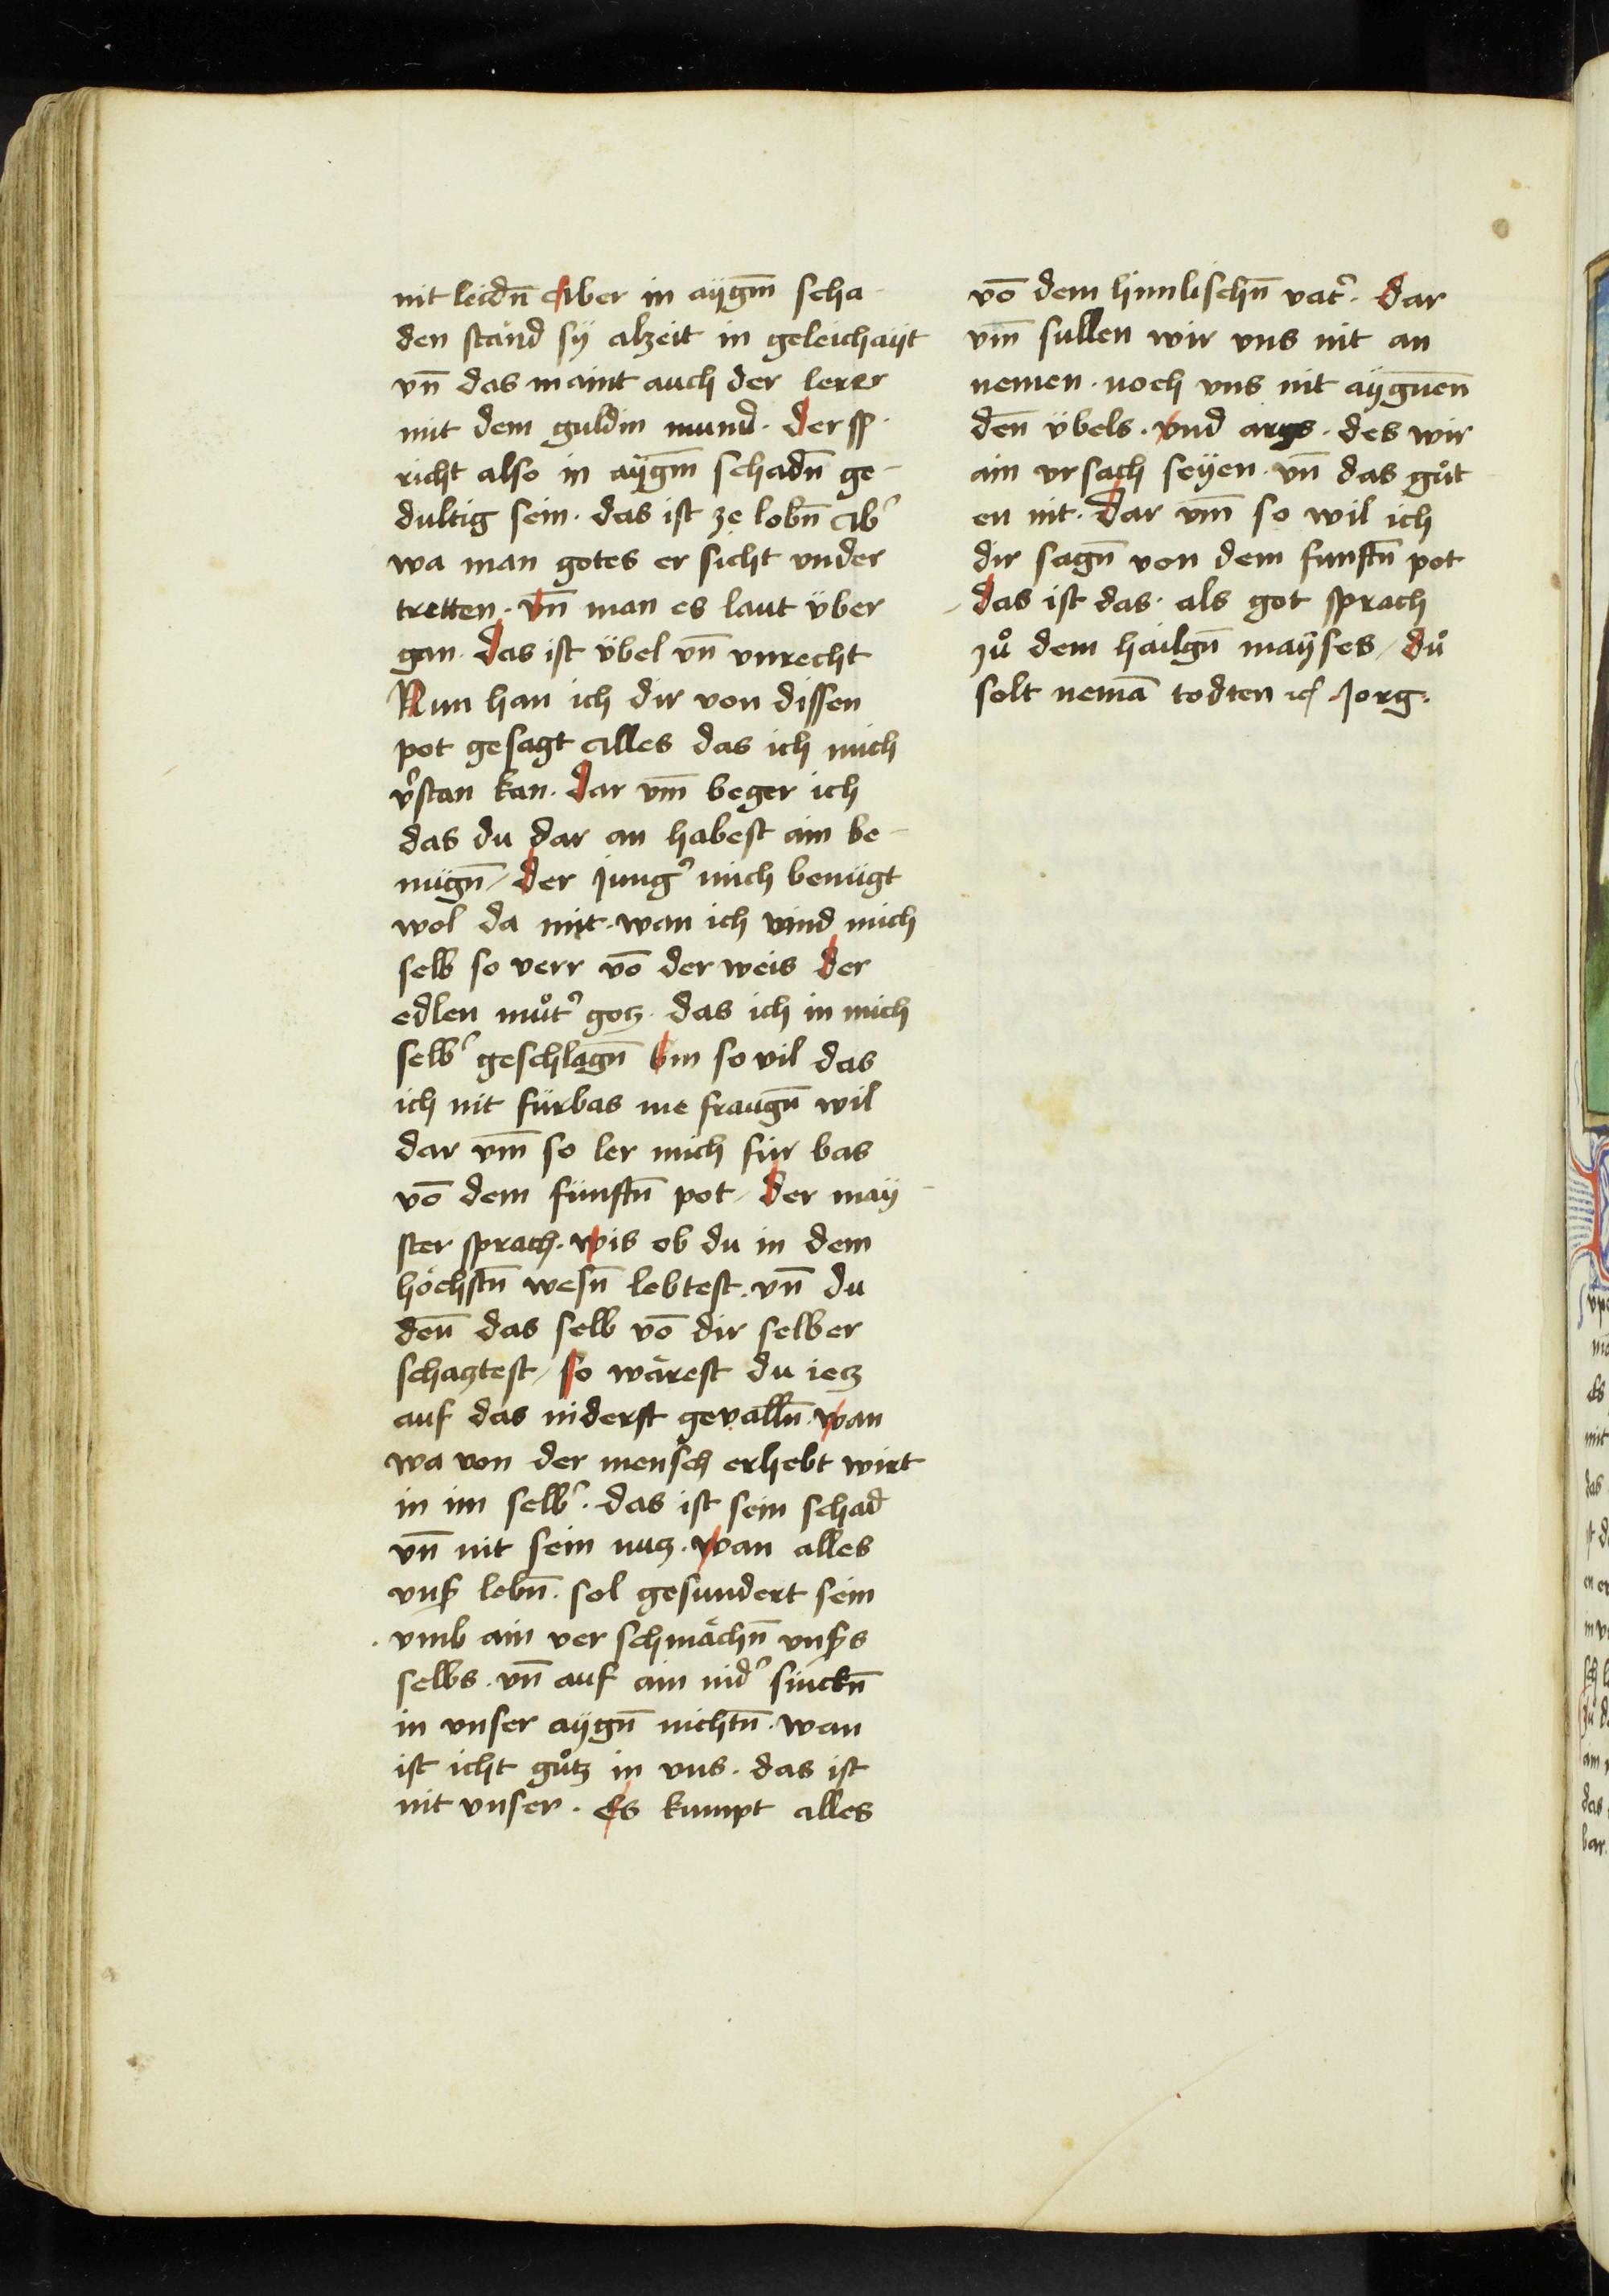 nit leidn̄ Aber in aygm̄ scha-
den stand sy alzeit in geleichayt
vn̄ das maint auch der lerer
mit dem guldin mund. der sp-
richt also in aygm̄ schadn̄ ge-
dultig sein. das ist ze lobn̄ Ab᾽
wa man gotes er sicht vnder
tretten. Vn̄ man es laut über
gan. das ist übel vn̄ vnrecht
Nun han ich dir von dissen
pot gesagt Alles das ich mich
v᾽stan kan. dar vm̄ beger ich
das du dar an habest ain be-
nügn̄ / der jung᾽ mich benügt
wol da mit. wan ich vind mich
selb so verr vō der weis der
edlen můt᾽ gotz. das ich in mich
selb᾽ geschlagn̄ bin so vil das
ich nit fürbas me fraugn̄ wil
dar vm̄ so ler mich für bas
vō dem fünftn̄ pot / der may-
ster sprach. wis ob du in dem
höchstn̄ wesn̄ lebtest. vn̄ du
den̄ das selb vō dir selber
schaztest / so wärest du ietz
auf das niderst gevalln̄. wan
wa von der mensch erhebt wirt
in im selb᾽. das ist sein schad
vn̄ nit sein nutz. wan alles
vnß lebn̄. sol gesundert sein
vmb ain ver schmächn̄ vnßs
selbs. vn̄ auf ain nid᾽ sinckn̄
in vnser aygn̄ nichtn̄. wan
ist icht gůtz in vns. das ist
nit vnser. Es kumpt alles
vō dem himlischn̄ vat᾽. dar
vm̄ sullen wir vns nit an
nemen. noch vns nit aygnen̄
den̄ übels. vnd args. des wir
ain vrsach seyen. vn̄ das gůt
en nit. dar vm̄ so wil ich
dir sagn̄ von dem funftn̄ pot
das ist das. als got sprach
zů dem hailgn̄ mayses / dů
solt nemā todten ic᾽ Jorg.